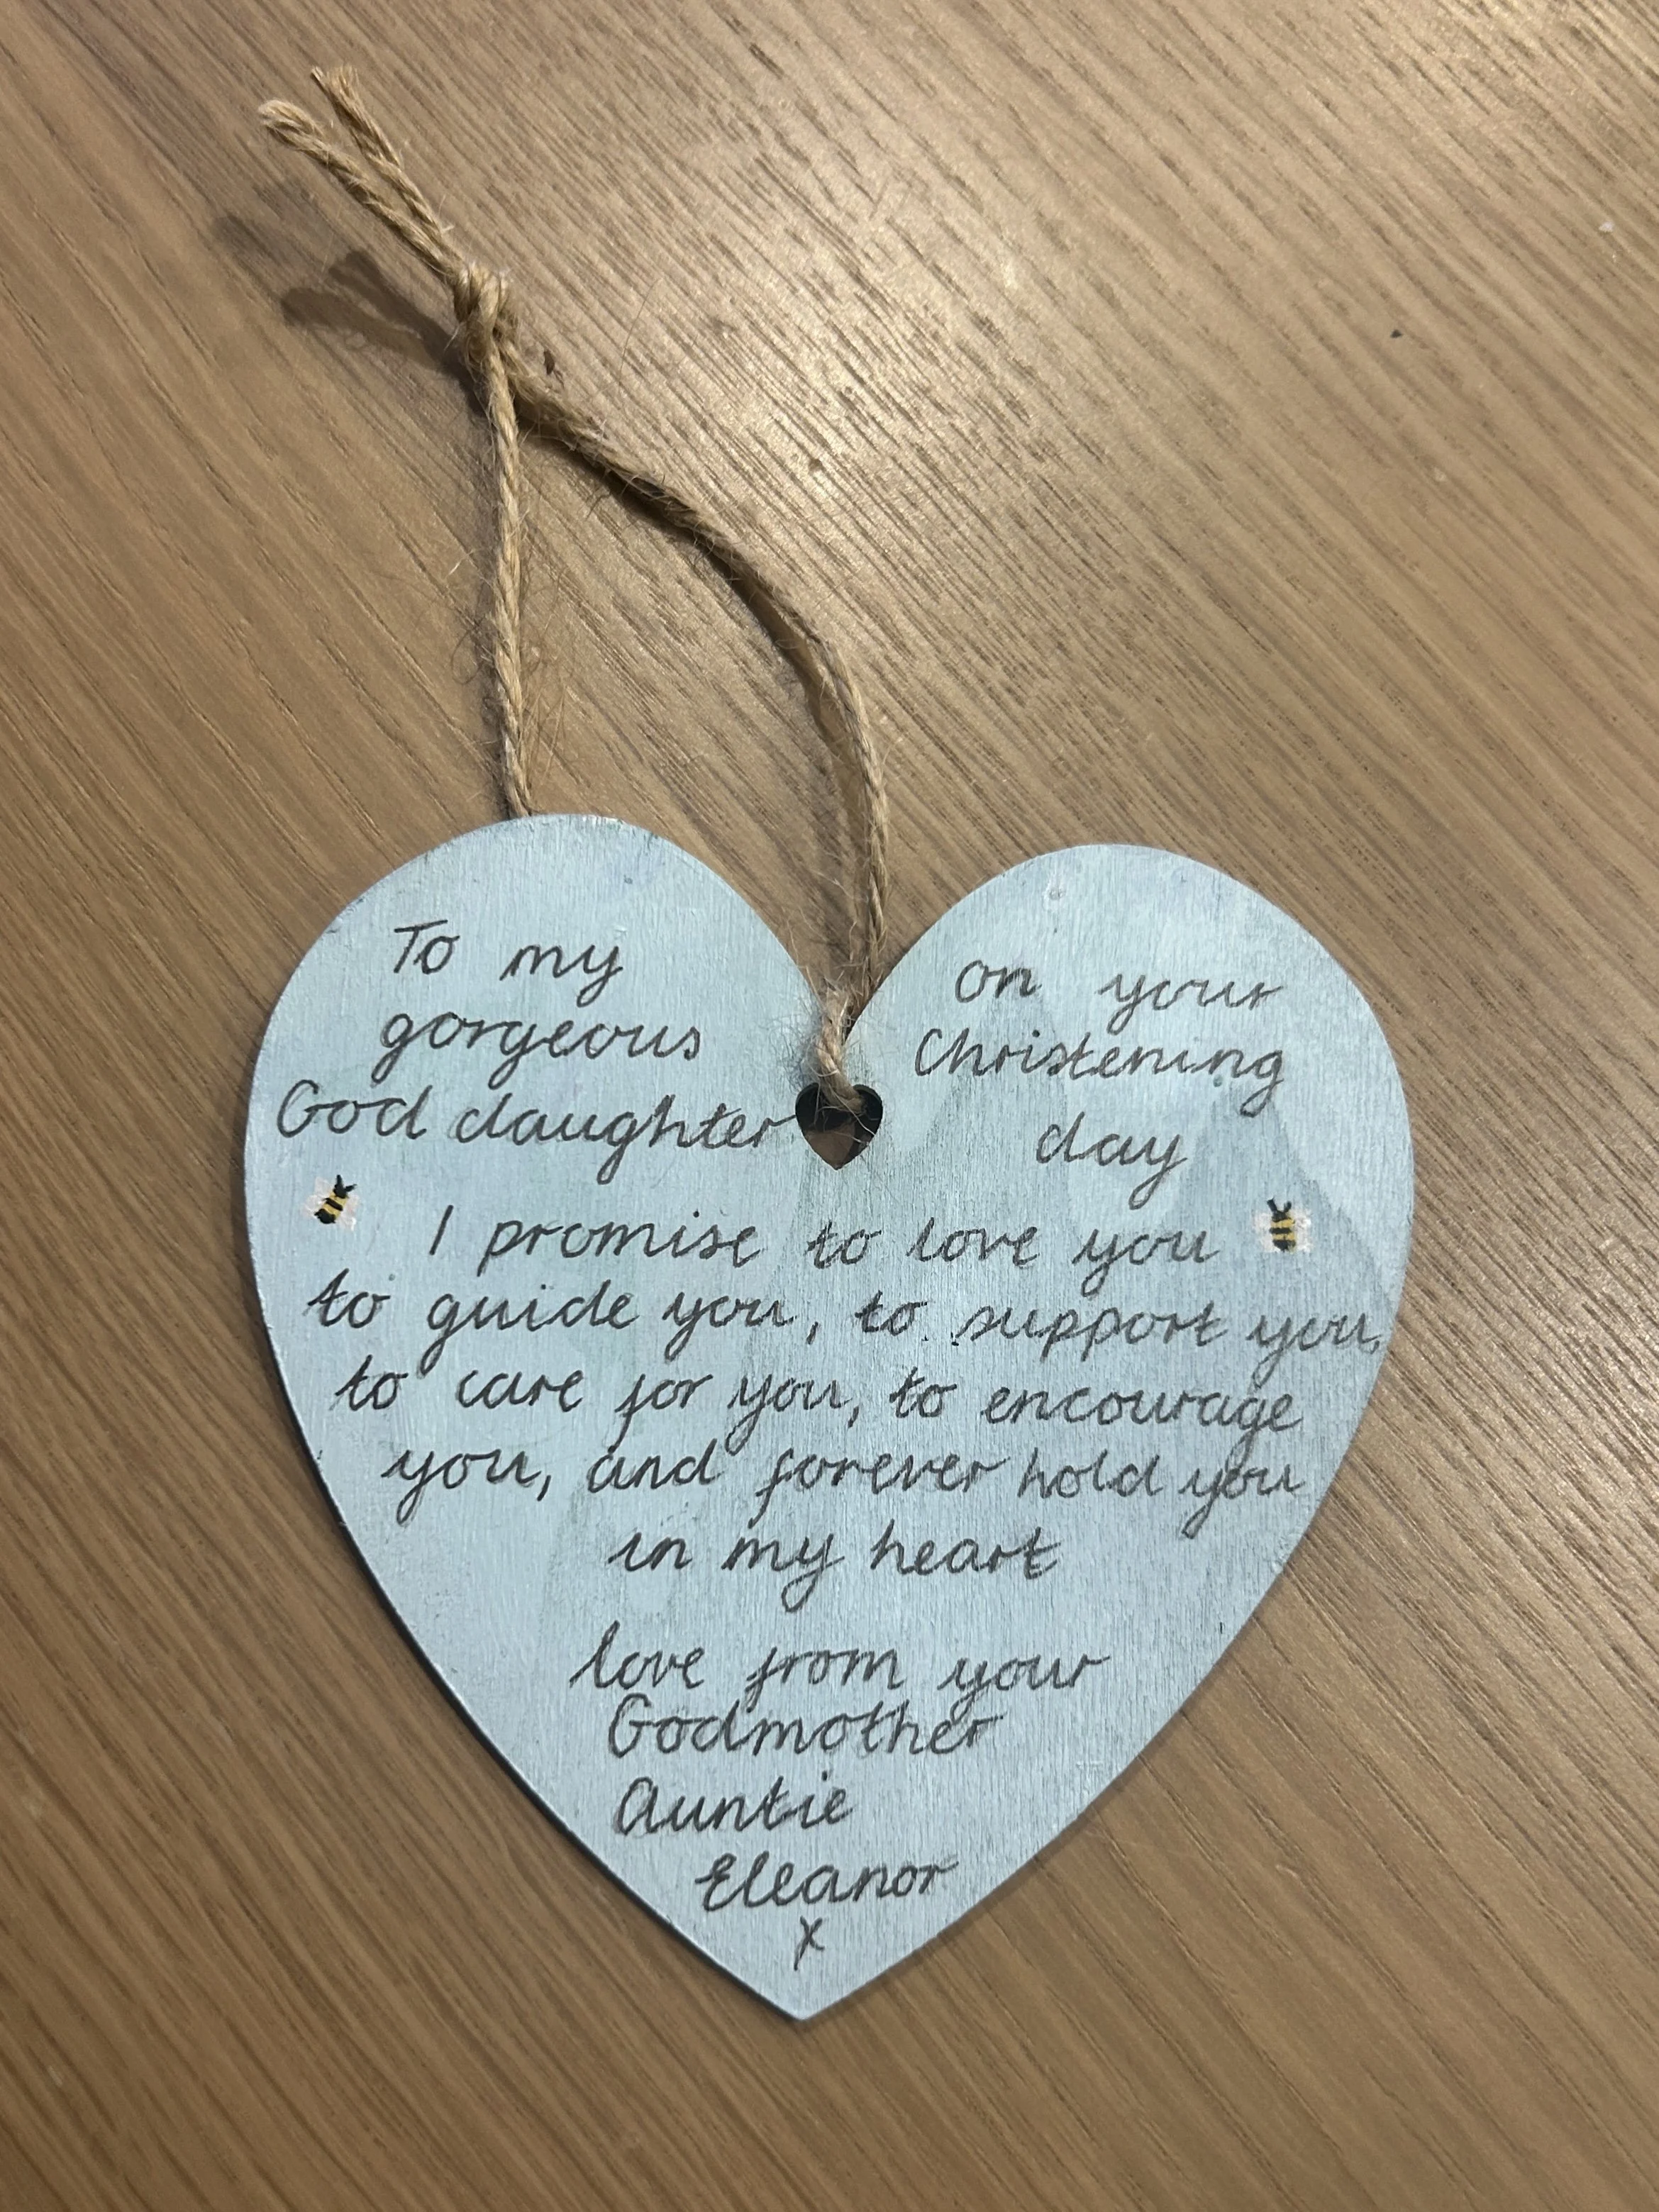 To my
gorgeous
God daughter
on your
Christening
day
I promise to love you
to guide you, to support you,
to care for you, to encourage
you, and forever hold you
in my heart
love from your
Godmother
Auntie
Eleanor
x